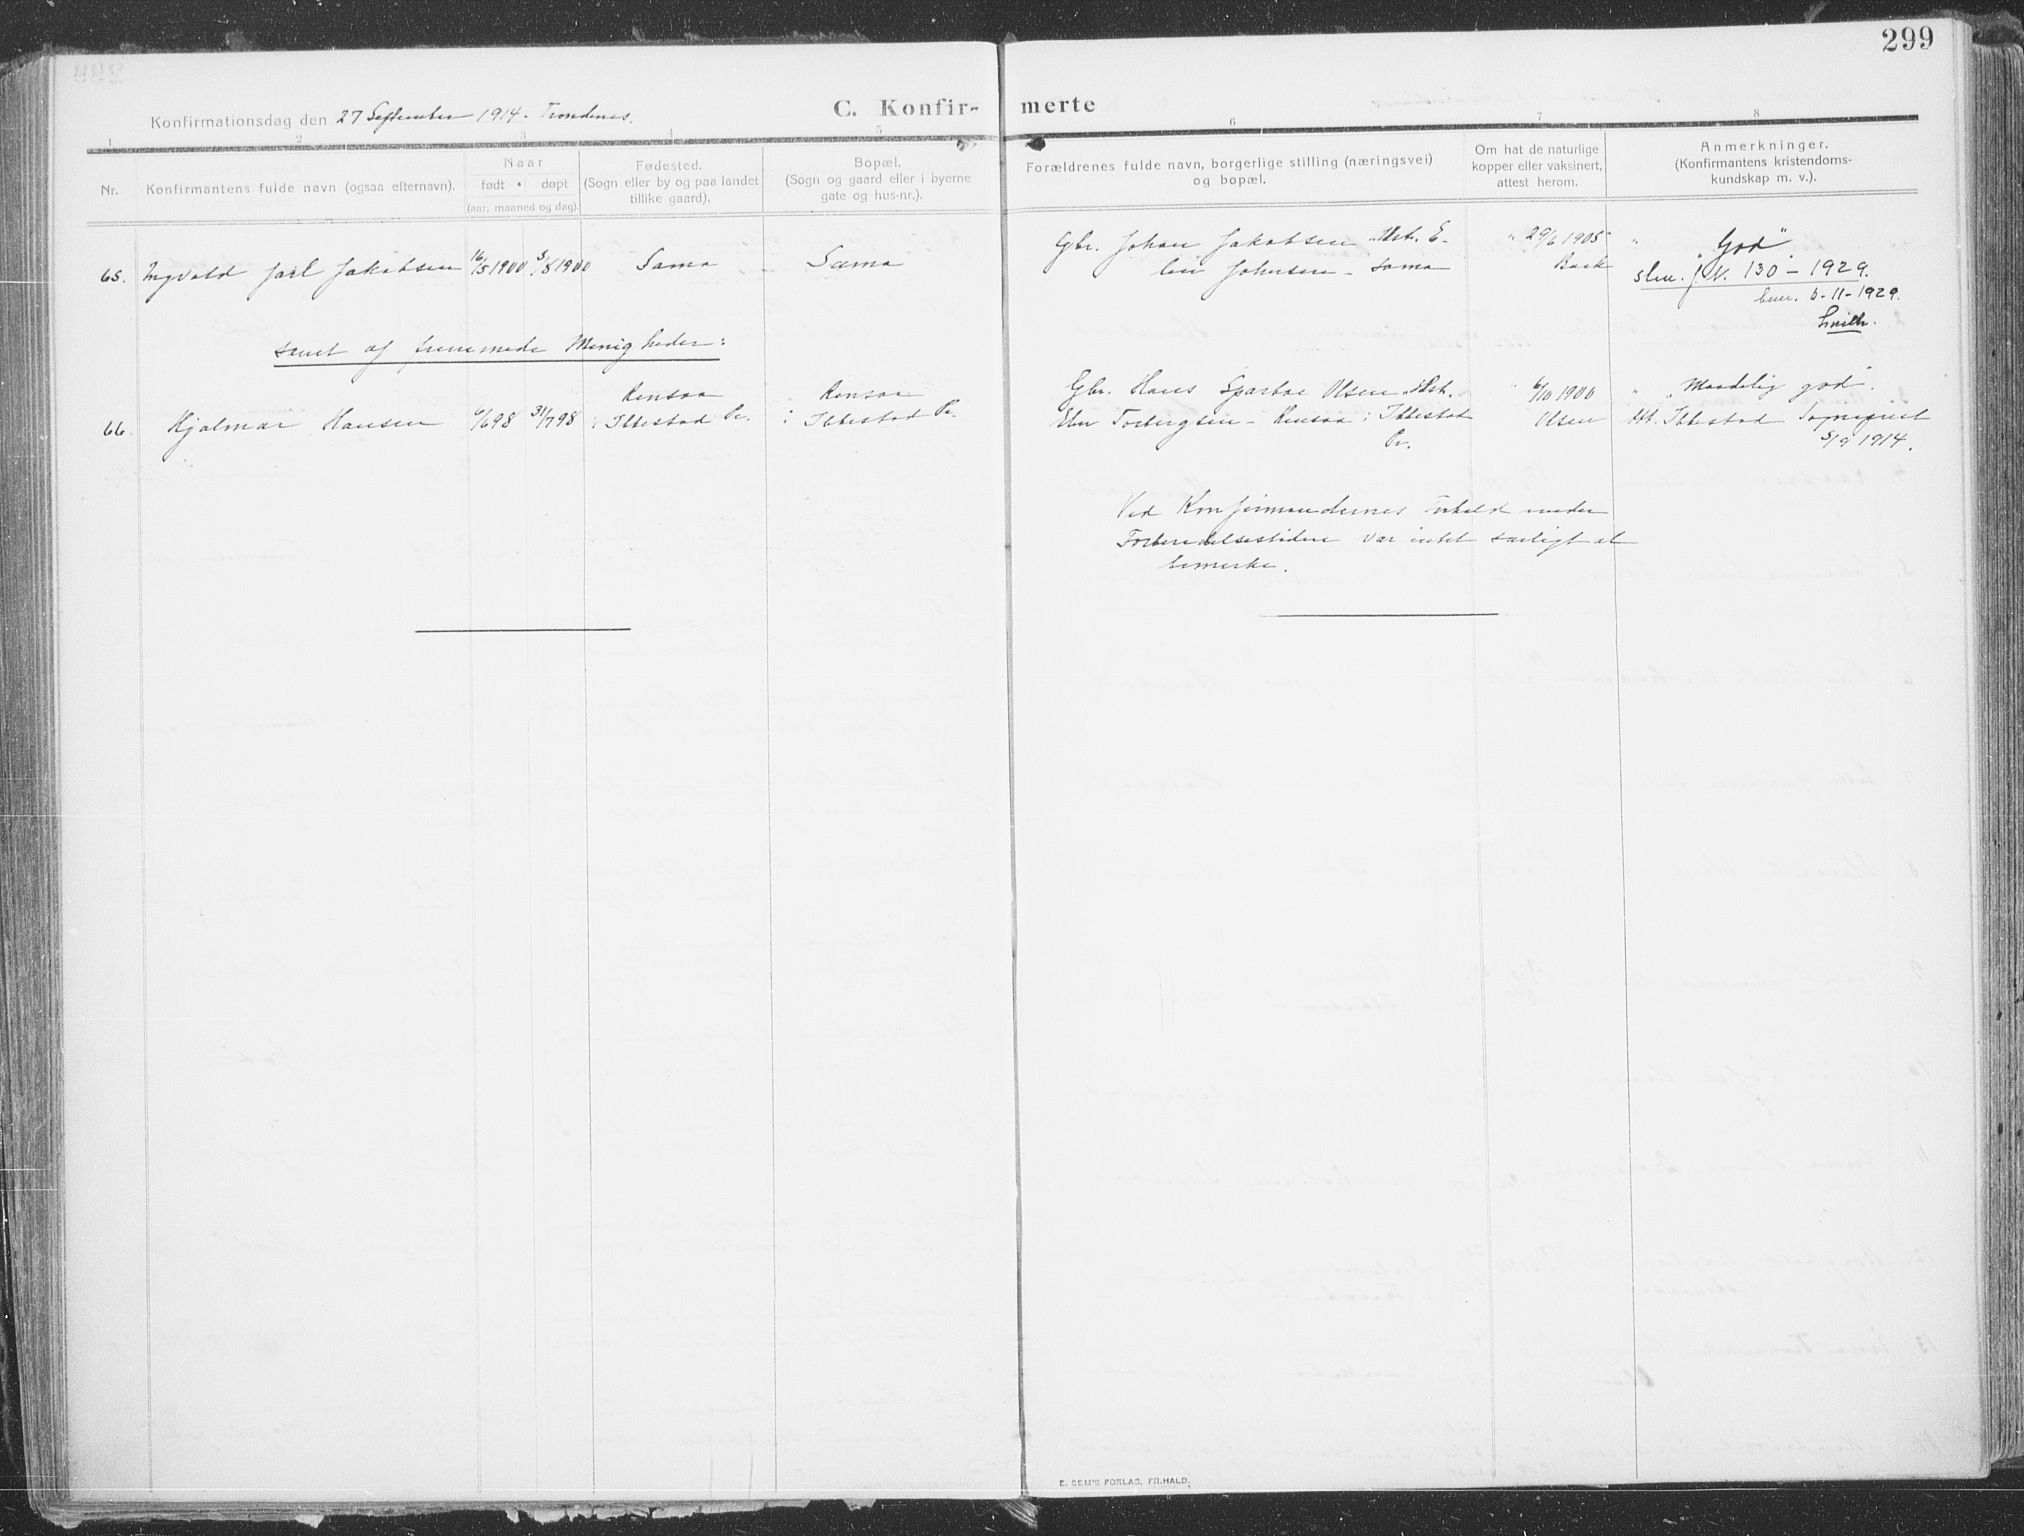 299
Konfirmationsdag den 27 September 1914. Trondenes.
C. Konfir-
merte
1 2 3 4 5 6 7 8
Nr.
Konfirmantens fulde navn (ogsaa efternavn).
Naar
født • døpt
(aar, maaned og dag).
Fødested.
(Sogn eller by og paa landet
tillike gaard).
Bopæl.
(Sogn og gaard eller i byerne
gate og hus-nr.).
Forældrenes fulde navn, borgerlige stilling (næringsvei)
og bopæl.
Om hat de naturlige
kopper eller vaksinert,
attest herom.
Anmerkninger.
(Konfirmantens kristendoms-
kundskap m. v.).
65. Ingvald Jarl Jakobsen 16/5 1900 5/8 1900 Sama Sama
Gbr. Johan Jakobsen Hst. E-
line Johnsen - Sama
" 29/6 1905
Back
" "God"
J. N. 130 - 1929.
6-11-1929.
samt af fremmede Menigheder:
66. Hjalmar Hansen 6/6 98 31/7 98
Rensaa
i Ibbestad Pr.
Rensaa
i Ibbestad Pr.
Gbr. Hans Sparboe Olsen Hst.
Torbergsen - Rensaa i Ibbestad
Pr.
" 6/10 1900
Olsen
" "Maadelig god".
Att. Ibbestad Sogneprest
5/9 1914.
Ved Konfirmandernes Forhold under
Forberedelsestiden var intet særligt at
bemerke.
E. SEM'S FORLAG, FR.HALD.